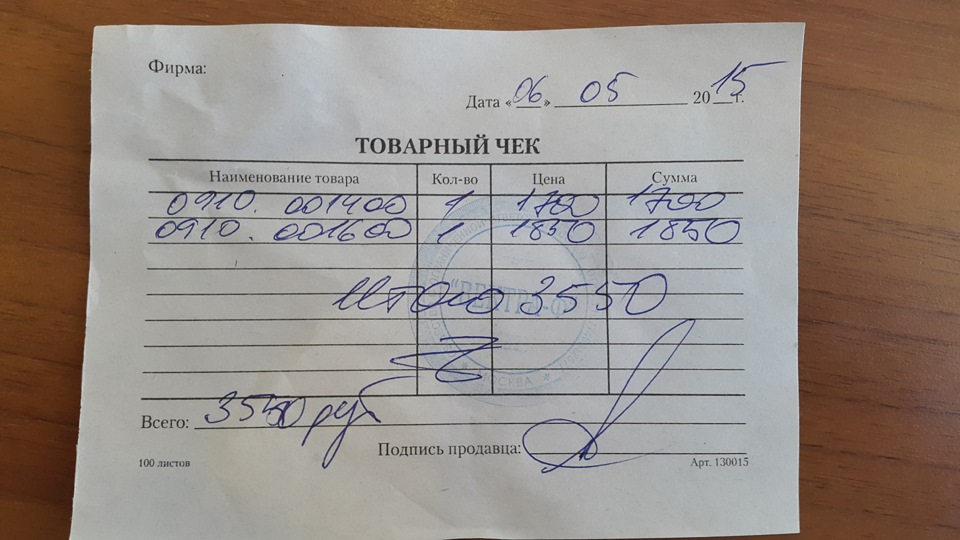 Фирма:
Дата «06» 05 2015г.
ТОВАРНЫЙ ЧЕК
Наименование товара Кол-во Цена Сумма
0910. 001400 1 1700 1700
0910. 001600 1 1850 1850
Итого 3550
МОСКВА
Всего: 3550 руб
Подпись продавца:
100 листов Арт. 130015